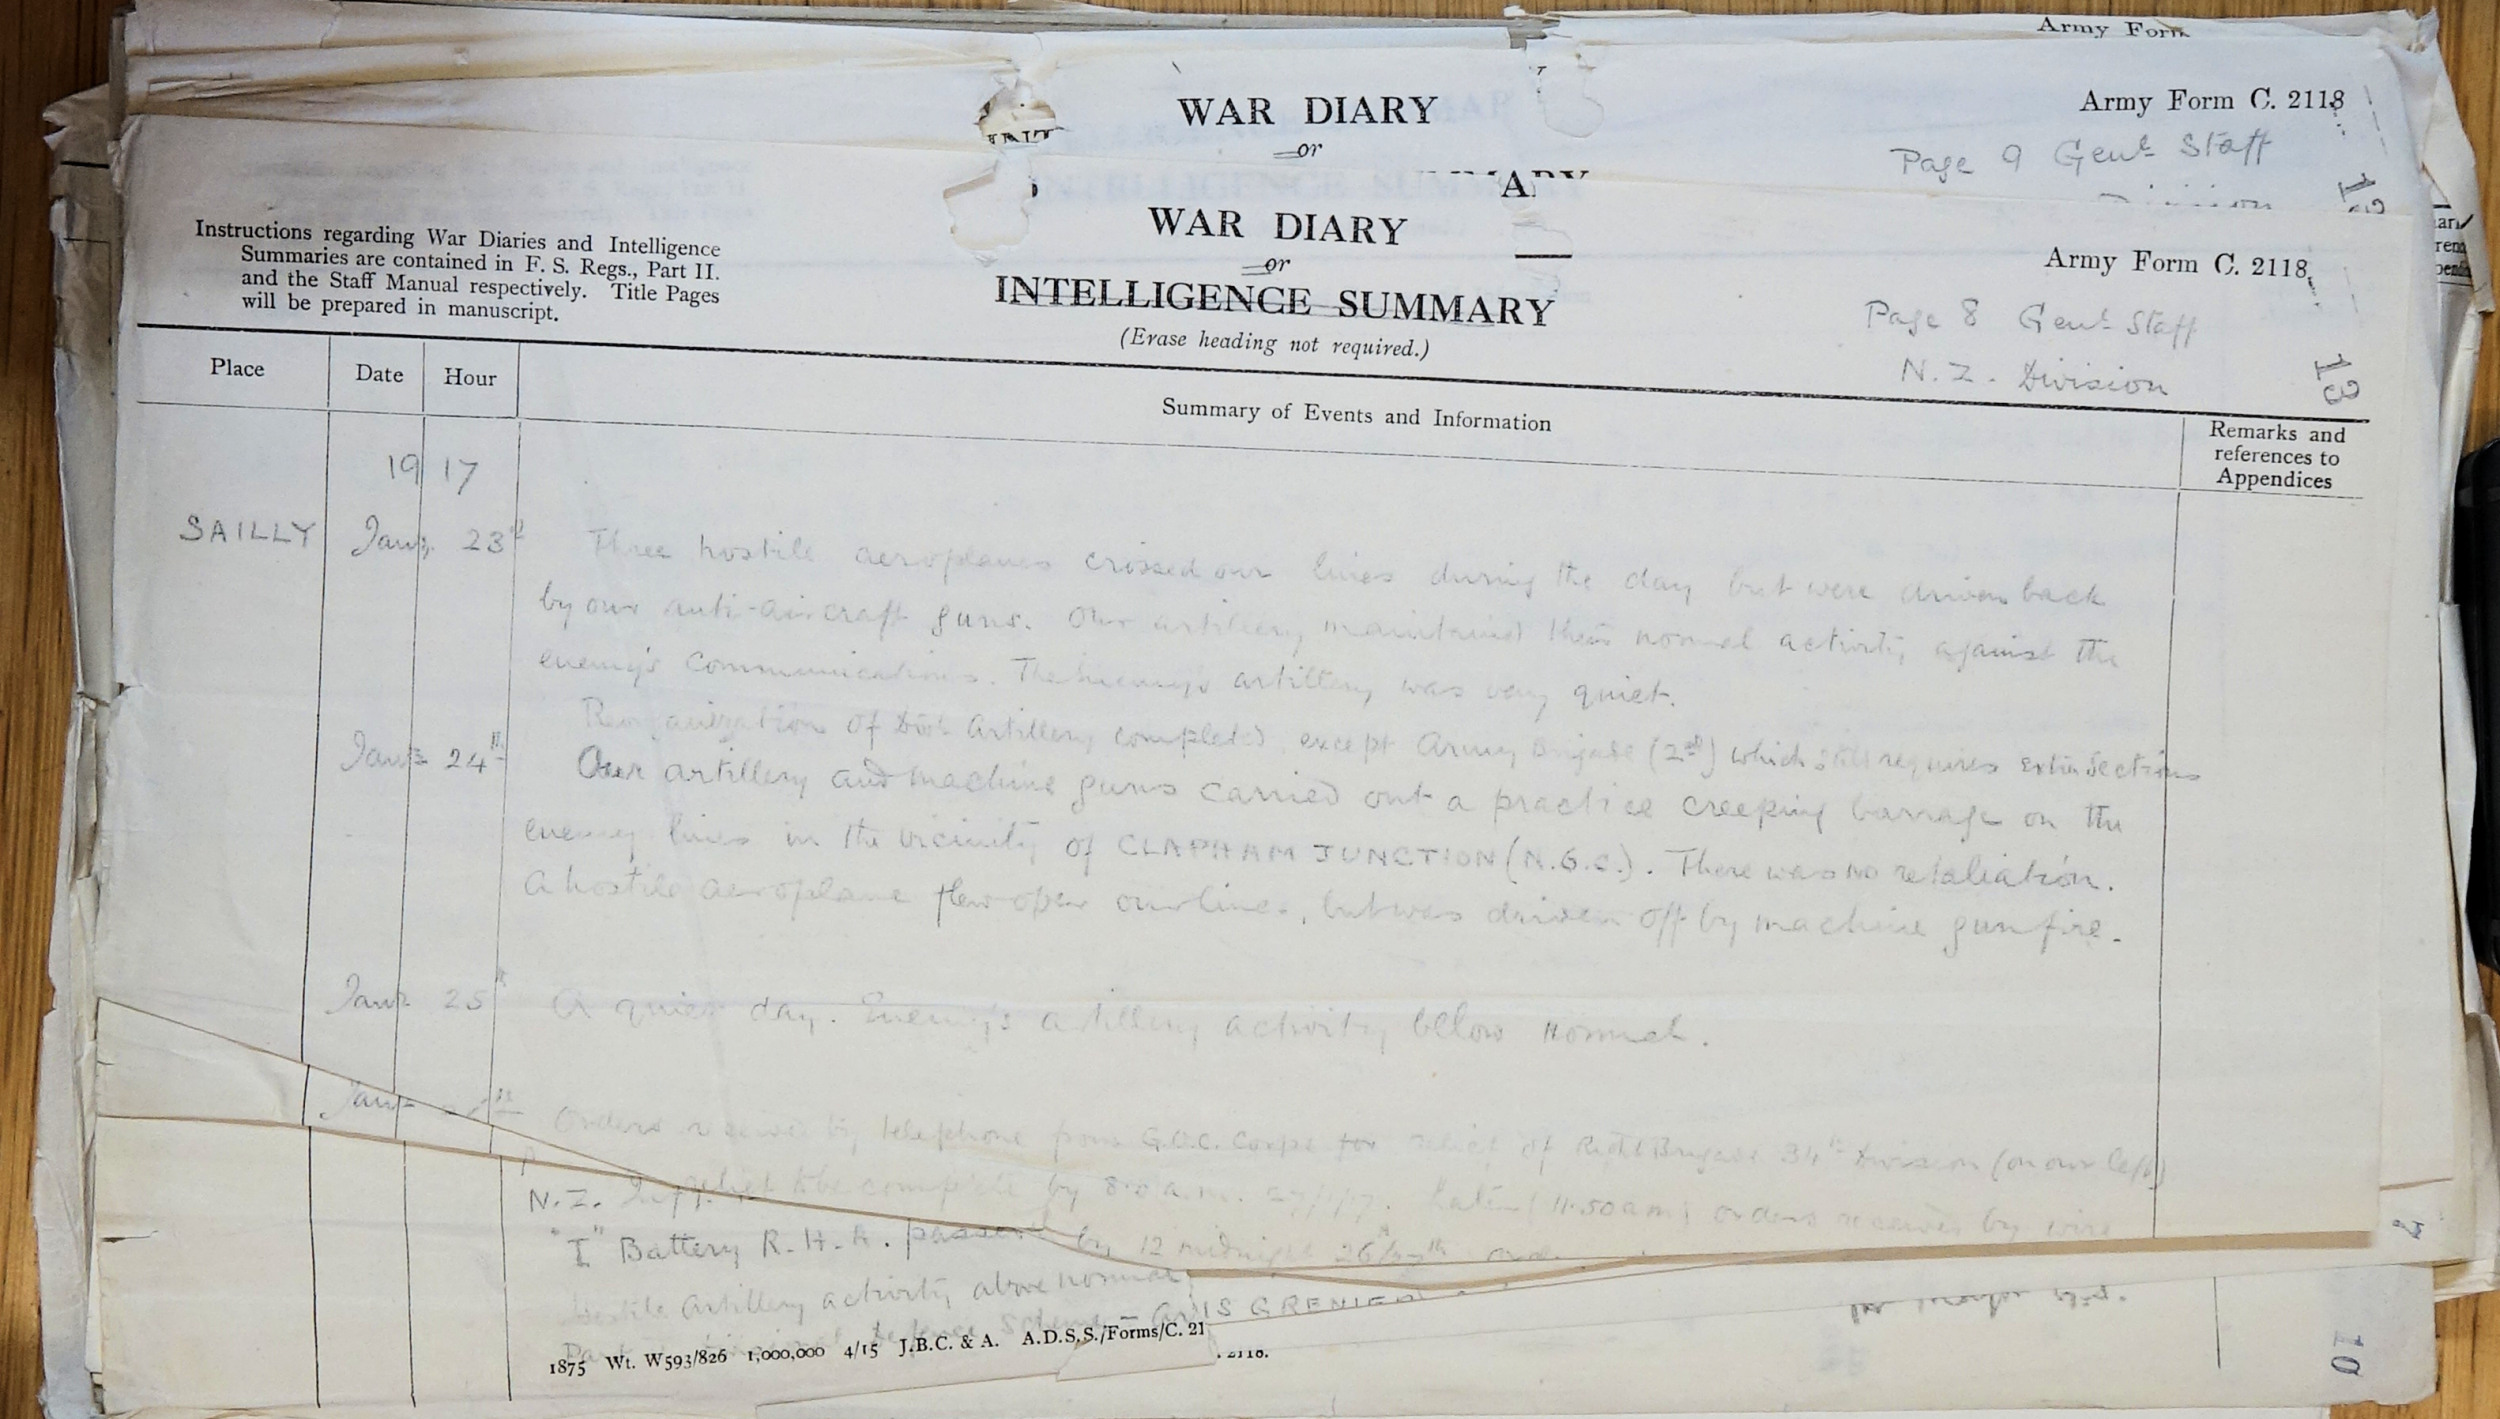 Army Form
WAR DIARY
or
Army Form C. 2118
Page 9 Genl Staff
Division
WAR DIARY
or
INTELLIGENCE SUMMARY
(Erase heading not required.)
Instructions regarding War Diaries and Intelligence
Summaries are contained in F. S. Regs., Part II.
and the Staff Manual respectively. Title Pages
will be prepared in manuscript.
Army Form C. 2118.
Page 8 Genl Staff
N.Z. Division
13
Place Date Hour Summary of Events and Information Remarks and
references to
Appendices
1917
SAILLY Jany. 23rd Three hostile aeroplanes crossed our lines during the day but were driven back
by our anti-aircraft guns. Our artillery maintained their normal activity against the
enemy's communications. The enemy's artillery was very quiet.
Reorganization of Divl Artillery completed except Army Brigade (2nd) which still requires extra sections
Jany 24th Our artillery and machine guns carried out a practice creeping barrage on the
enemy lines in the vicinity of CLAPHAM JUNCTION (N.6.c.). There was no retaliation.
A hostile aeroplane flew over our lines, but was driven off by machine gun fire.
Jany 25th A quiet day. Enemy's artillery activity below normal.
Jany Orders received by telephone from G.O.C. Corps for relief of Right Brigade 34th Division (on our left)
N.Z. to be complete by 8.0 a.m. 27/1/17. Later (11.50 am) orders received by wire
"I" Battery R.H.A. passed by 12 midnight 26/27th
Hostile Artillery activity above normal
Defence Scheme - GRENIER
1875 Wt. W593/826 1,000,000 4/15 J.B.C. & A. A.D.S.S./Forms/C. 21
2118.
10